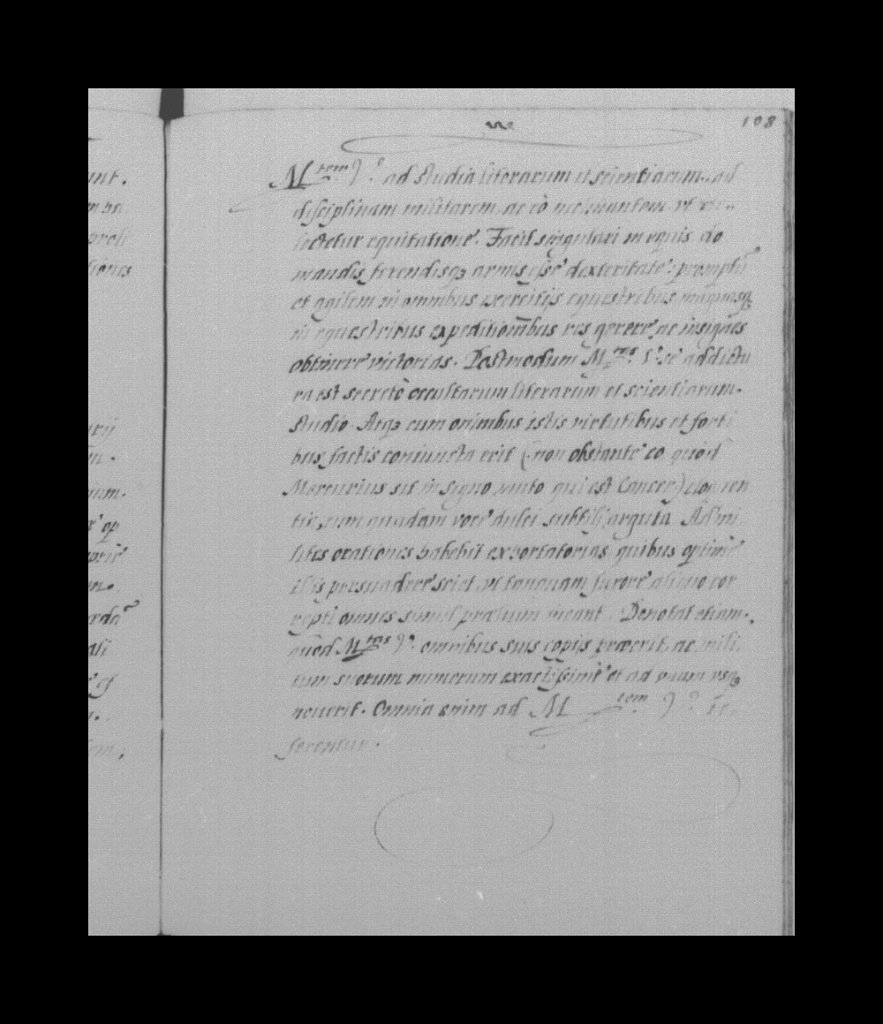 unt.
108
M.tem V.e ad studia literarum et scientiarum, ad
disciplinam militarem, ac eò me ut
lectetur equitatione. Facit singulari in equis do
mandis ferendisq3 armis esse dexteritate: promptū
et agilem in omnibus exercitijs equestribus magnasq3
in equestribus expeditionibus res gerere, ac insignes
obtinere victorias. Postmodum M.tas V.e sic addictu
ra est secretò occultarum literarum et scientiarum.
studio. Atq3 cum omnibus istis virtutibus et forti
bus factis coniuncta erit (non obstante eo quòd
Mercurius sit in signo muto qui est Cancer) eloquen
tia, cum quadam voce dulci subtili, arguta. Ad mi
lites orationes habebit exhortatorias quibus optimè
illis persuadere sciet, ut tanquam furore aliquo cor
repti omnes simul prælium ineant. Denotat etiam.
quòd M.tas V.e omnibus suis copijs præerit, ac mili
tum suorum numerum exactissimè et ad unum usq3
noverit. Omnia enim ad M.tem V. re
ferentur.